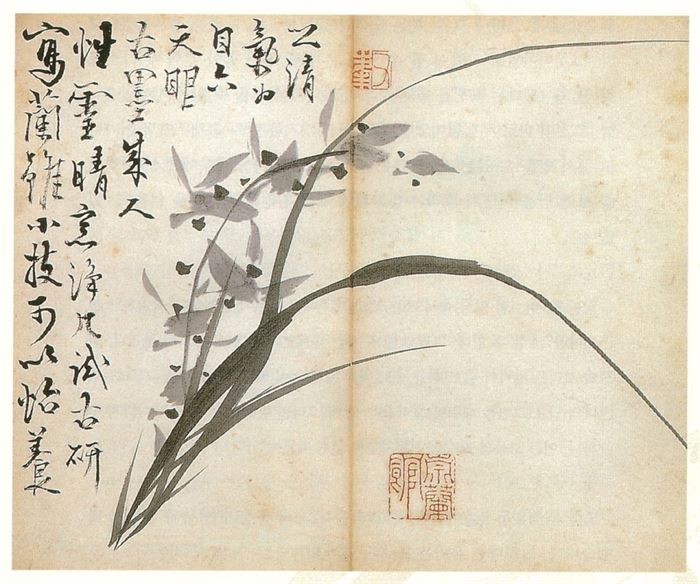 寫蘭雖小技可以怡養
性靈晴窓淨几試古研
古墨人
天眼
目
氣為
之清
崇蘭館